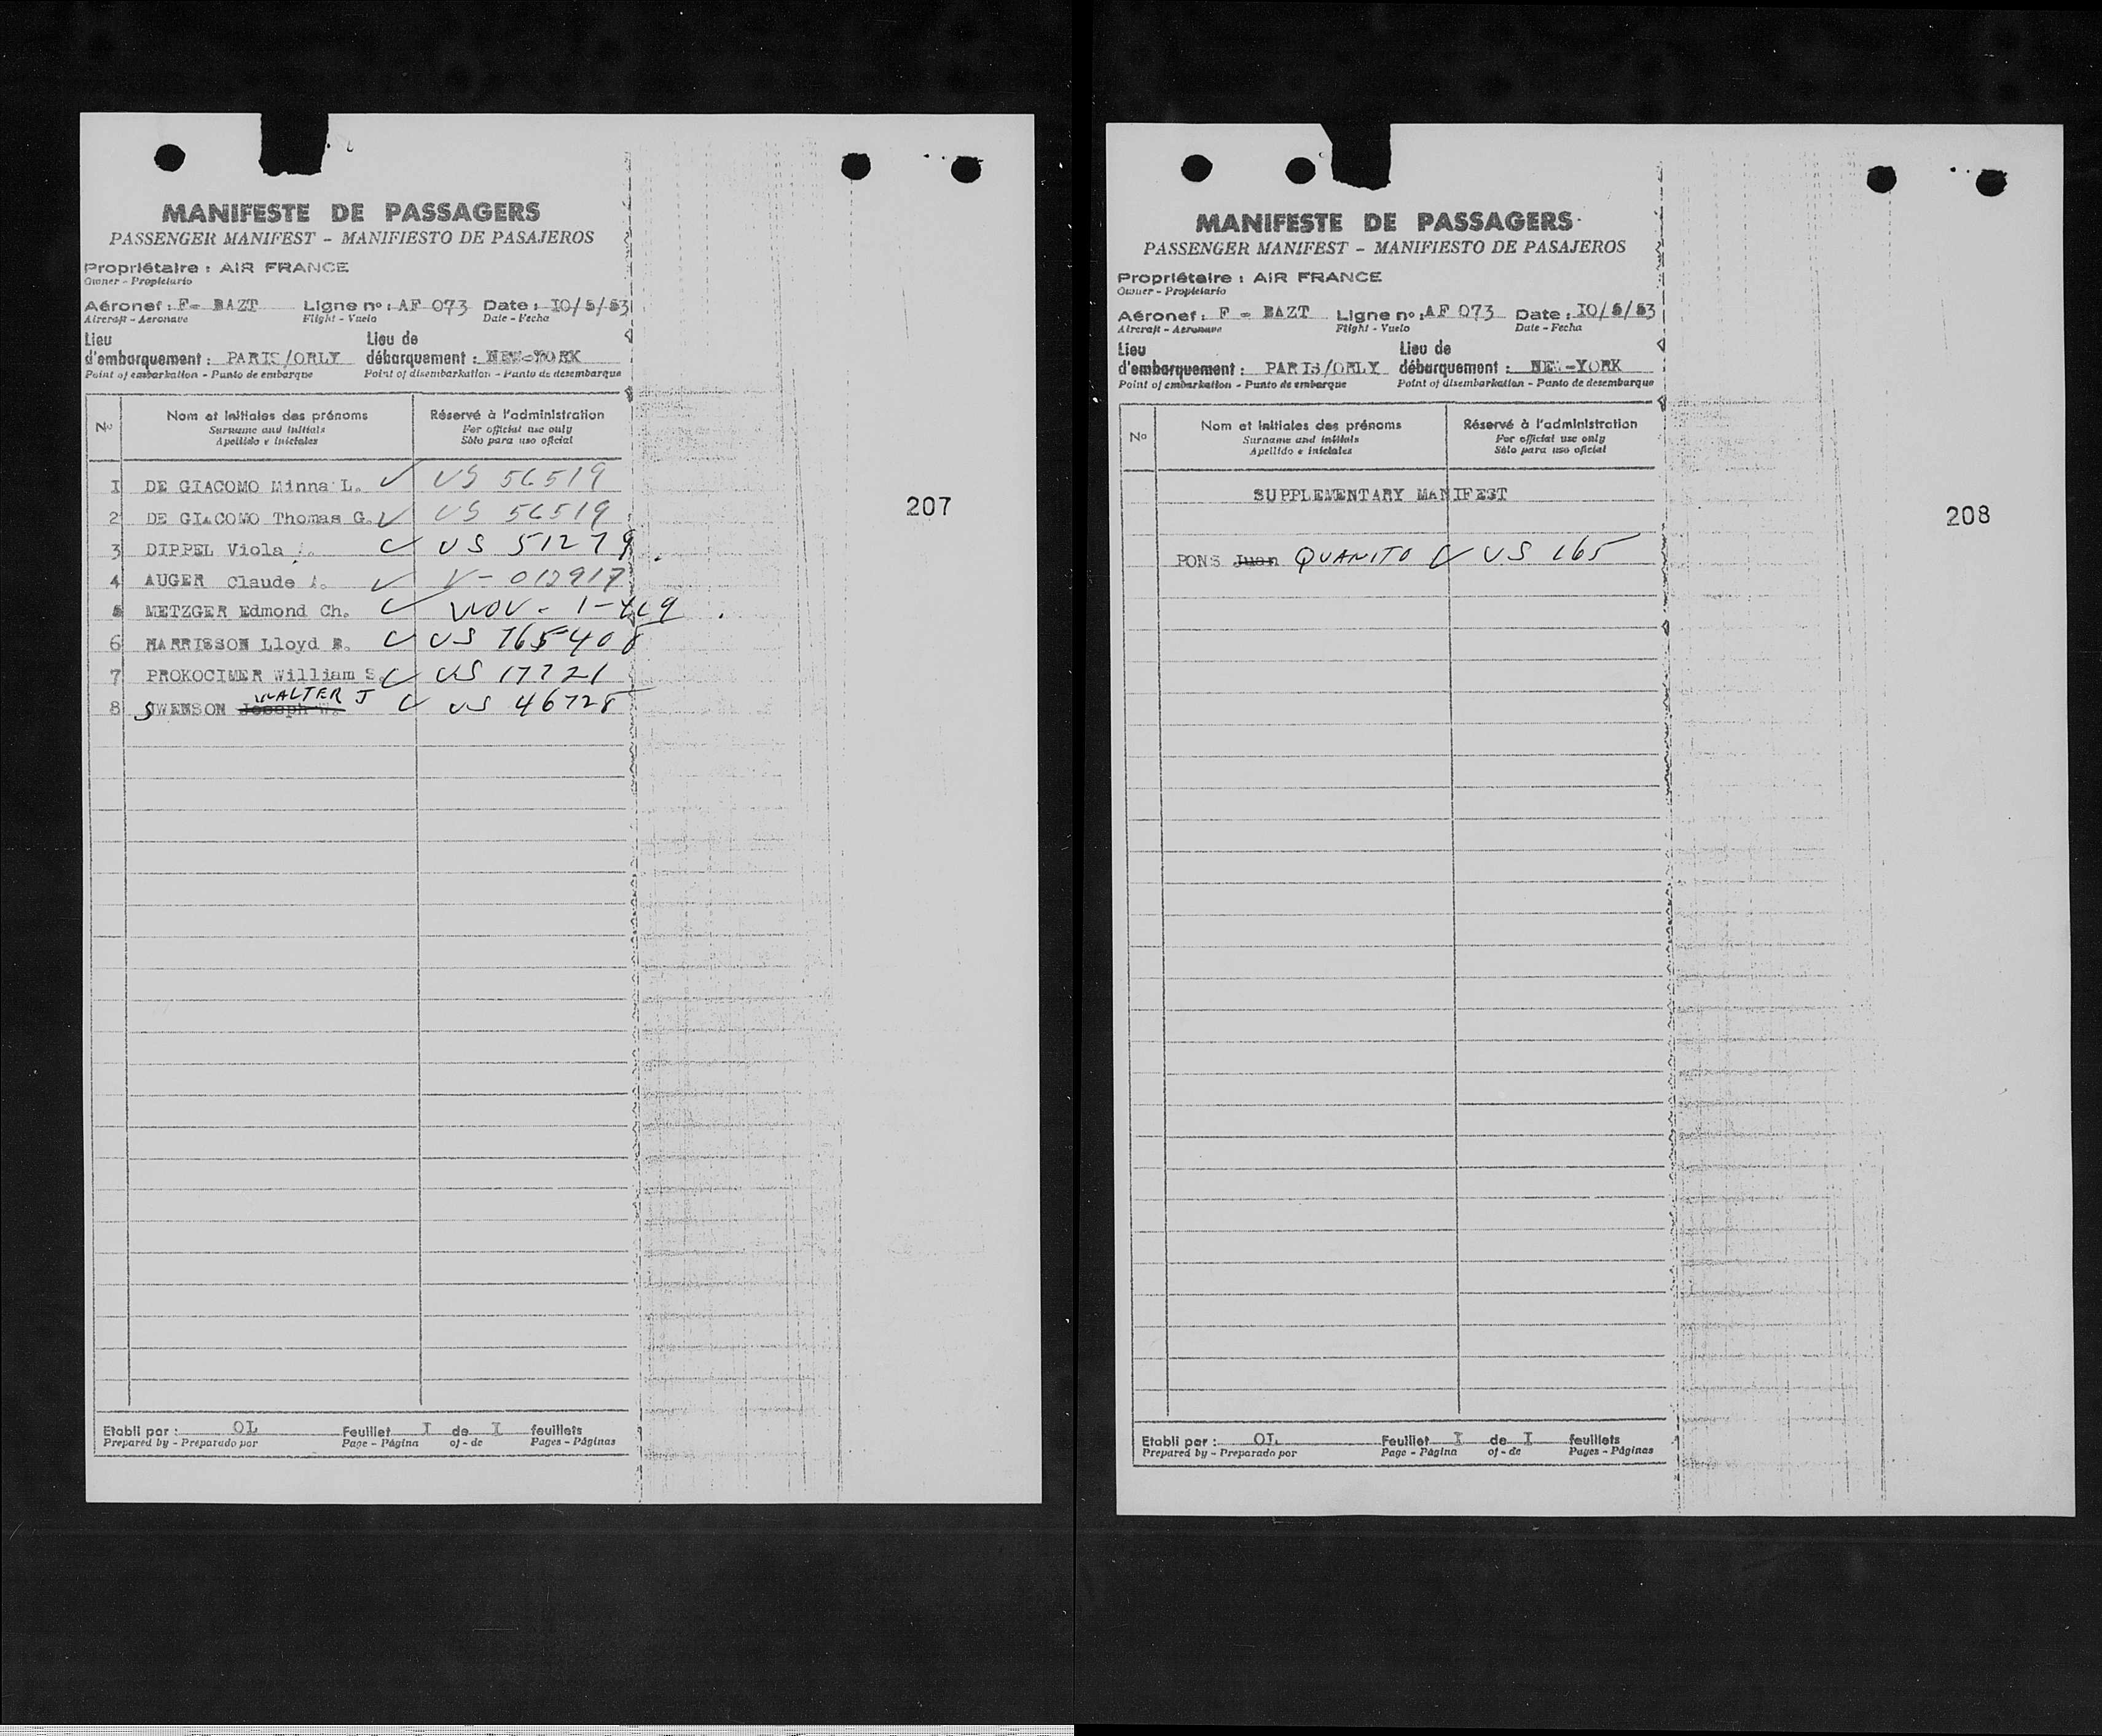 MANIFESTE DE PASSAGERS
PASSENGER MANIFEST - MANIFIESTO DE PASAJEROS
Propriétaire : AIR FRANCE
Owner - Propietario
Aéronef : F- BAZT Ligne nº : AF 073 Date : IO/5/53
Aircraft - Aeronave Flight - Vuelo Date - Fecha
Lieu d'embarquement : PARIS/ORLY Lieu de débarquement : NEW-YORK
Point of embarkation - Punto de embarque Point of disembarkation - Punto de desembarque
Nº Nom et Initiales des prénoms Réservé à l'administration
Surname and initials For official use only
Apellido e iniciales Sólo para uso oficial
I DE GIACOMO Minna L. ✓ US 56519
2 DE GIACOMO Thomas G. ✓ US 56519
3 DIPPEL Viola ✓ US 51279
4 AUGER Claude ✓ V- 012917
5 METZGER Edmond Ch. ✓
6 HARRISSON Lloyd ✓ US 765408
7 PROKOCIMER William S. ✓ US 17721
WALTER J
8 SWENSON Joseph W. ✓ US 46728
207
Etabli par : OL Feuillet I de I feuillets
Prepared by - Preparado por Page - Página of - de Pages - Páginas
MANIFESTE DE PASSAGERS
PASSENGER MANIFEST - MANIFIESTO DE PASAJEROS
Propriétaire : AIR FRANCE
Owner - Propietario
Aéronef : F - BAZT Ligne nº : AF 073 Date : IO/5/53
Aircraft - Aeronave Flight - Vuelo Date - Fecha
Lieu d'embarquement : PARIS/ORLY Lieu de débarquement : NEW-YORK
Point of embarkation - Punto de embarque Point of disembarkation - Punto de desembarque
Nº Nom et Initiales des prénoms Réservé à l'administration
Surname and initials For official use only
Apellido e iniciales Sólo para uso oficial
SUPPLEMENTARY MANIFEST
PONS Juan QUANITO ✓ US 165
208
Etabli par : OL Feuillet I de I feuillets
Prepared by - Preparado por Page - Página of - de Pages - Páginas